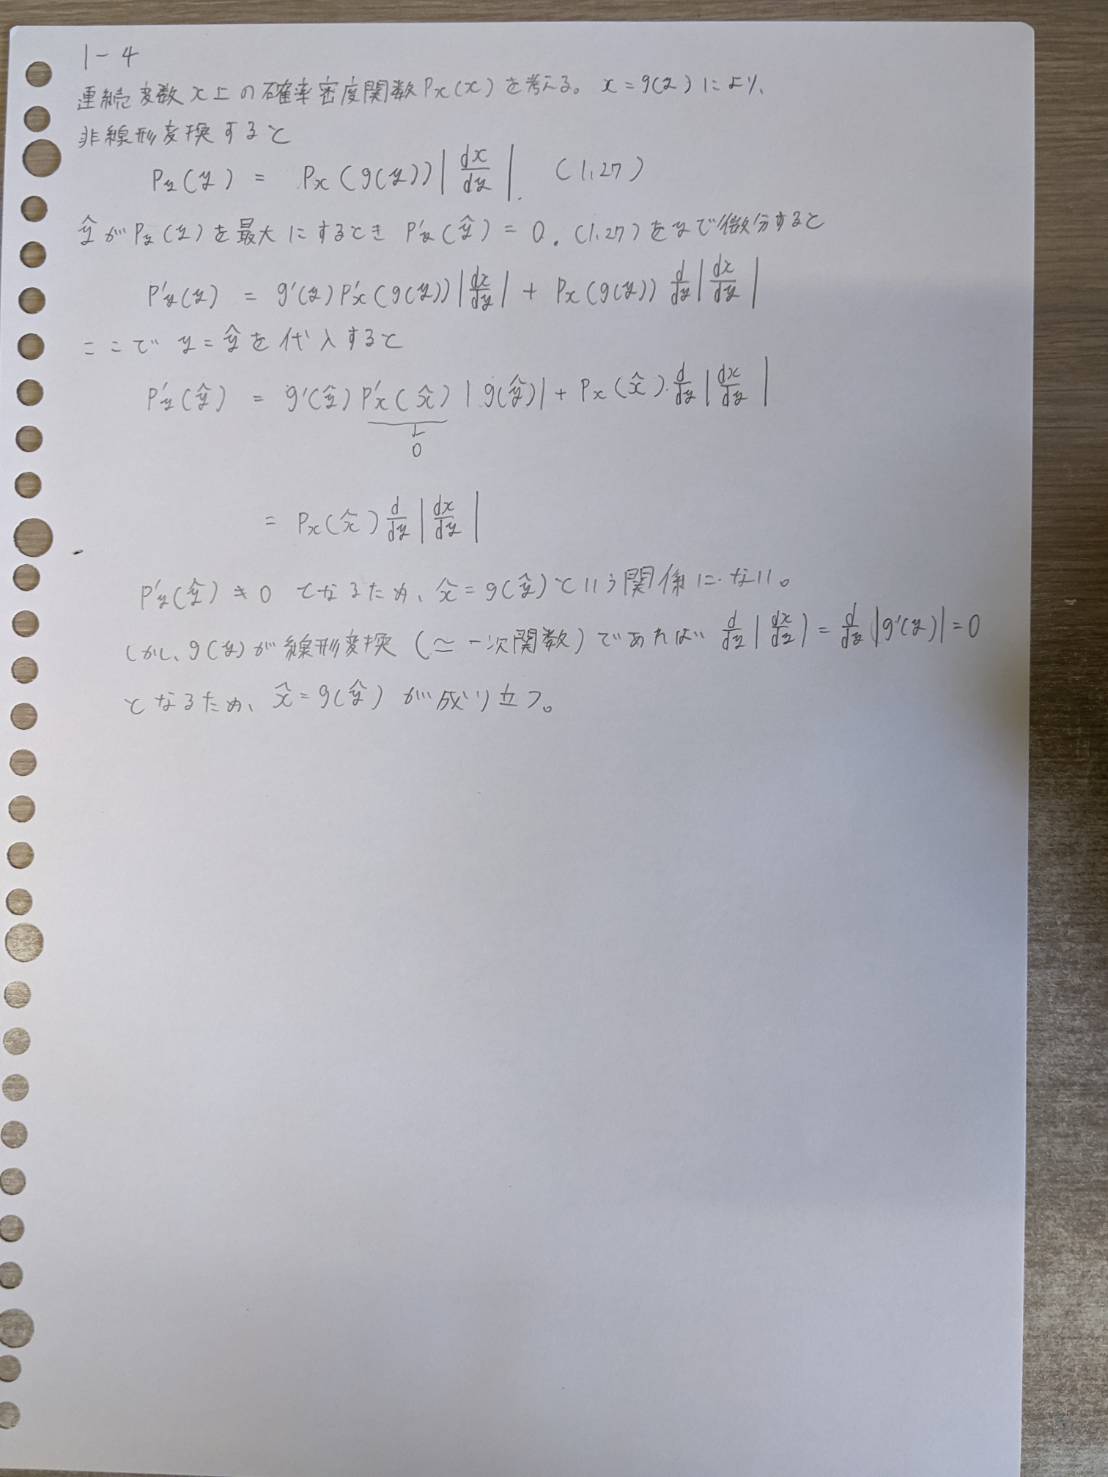 1-4
連続変数 x 上の確率密度関数 Px(x) を考える。 x = g(y) により、
非線形変換すると
Py(y) = Px(g(y)) |dx/dy|. (1.27)
ŷ が Py(y) を最大にするとき P'y(ŷ) = 0. (1.27) を y で微分すると
P'y(y) = g'(y) P'x(g(y)) |dx/dy| + Px(g(y)) d/dy |dx/dy|
ここで y = ŷ を代入すると
P'y(ŷ) = g'(ŷ) P'x(x̂) |g(ŷ)| + Px(x̂)・d/dy |dx/dy|
0
= Px(x̂) d/dy |dx/dy|
P'y(ŷ) ≠ 0 となるため、 x̂ = g(ŷ) という関係にない。
しかし、g(y) が線形変換 (≃ 一次関数) であれば d/dy |dx/dy| = d/dy |g'(y)| = 0
となるため、 x̂ = g(ŷ) が成り立つ。